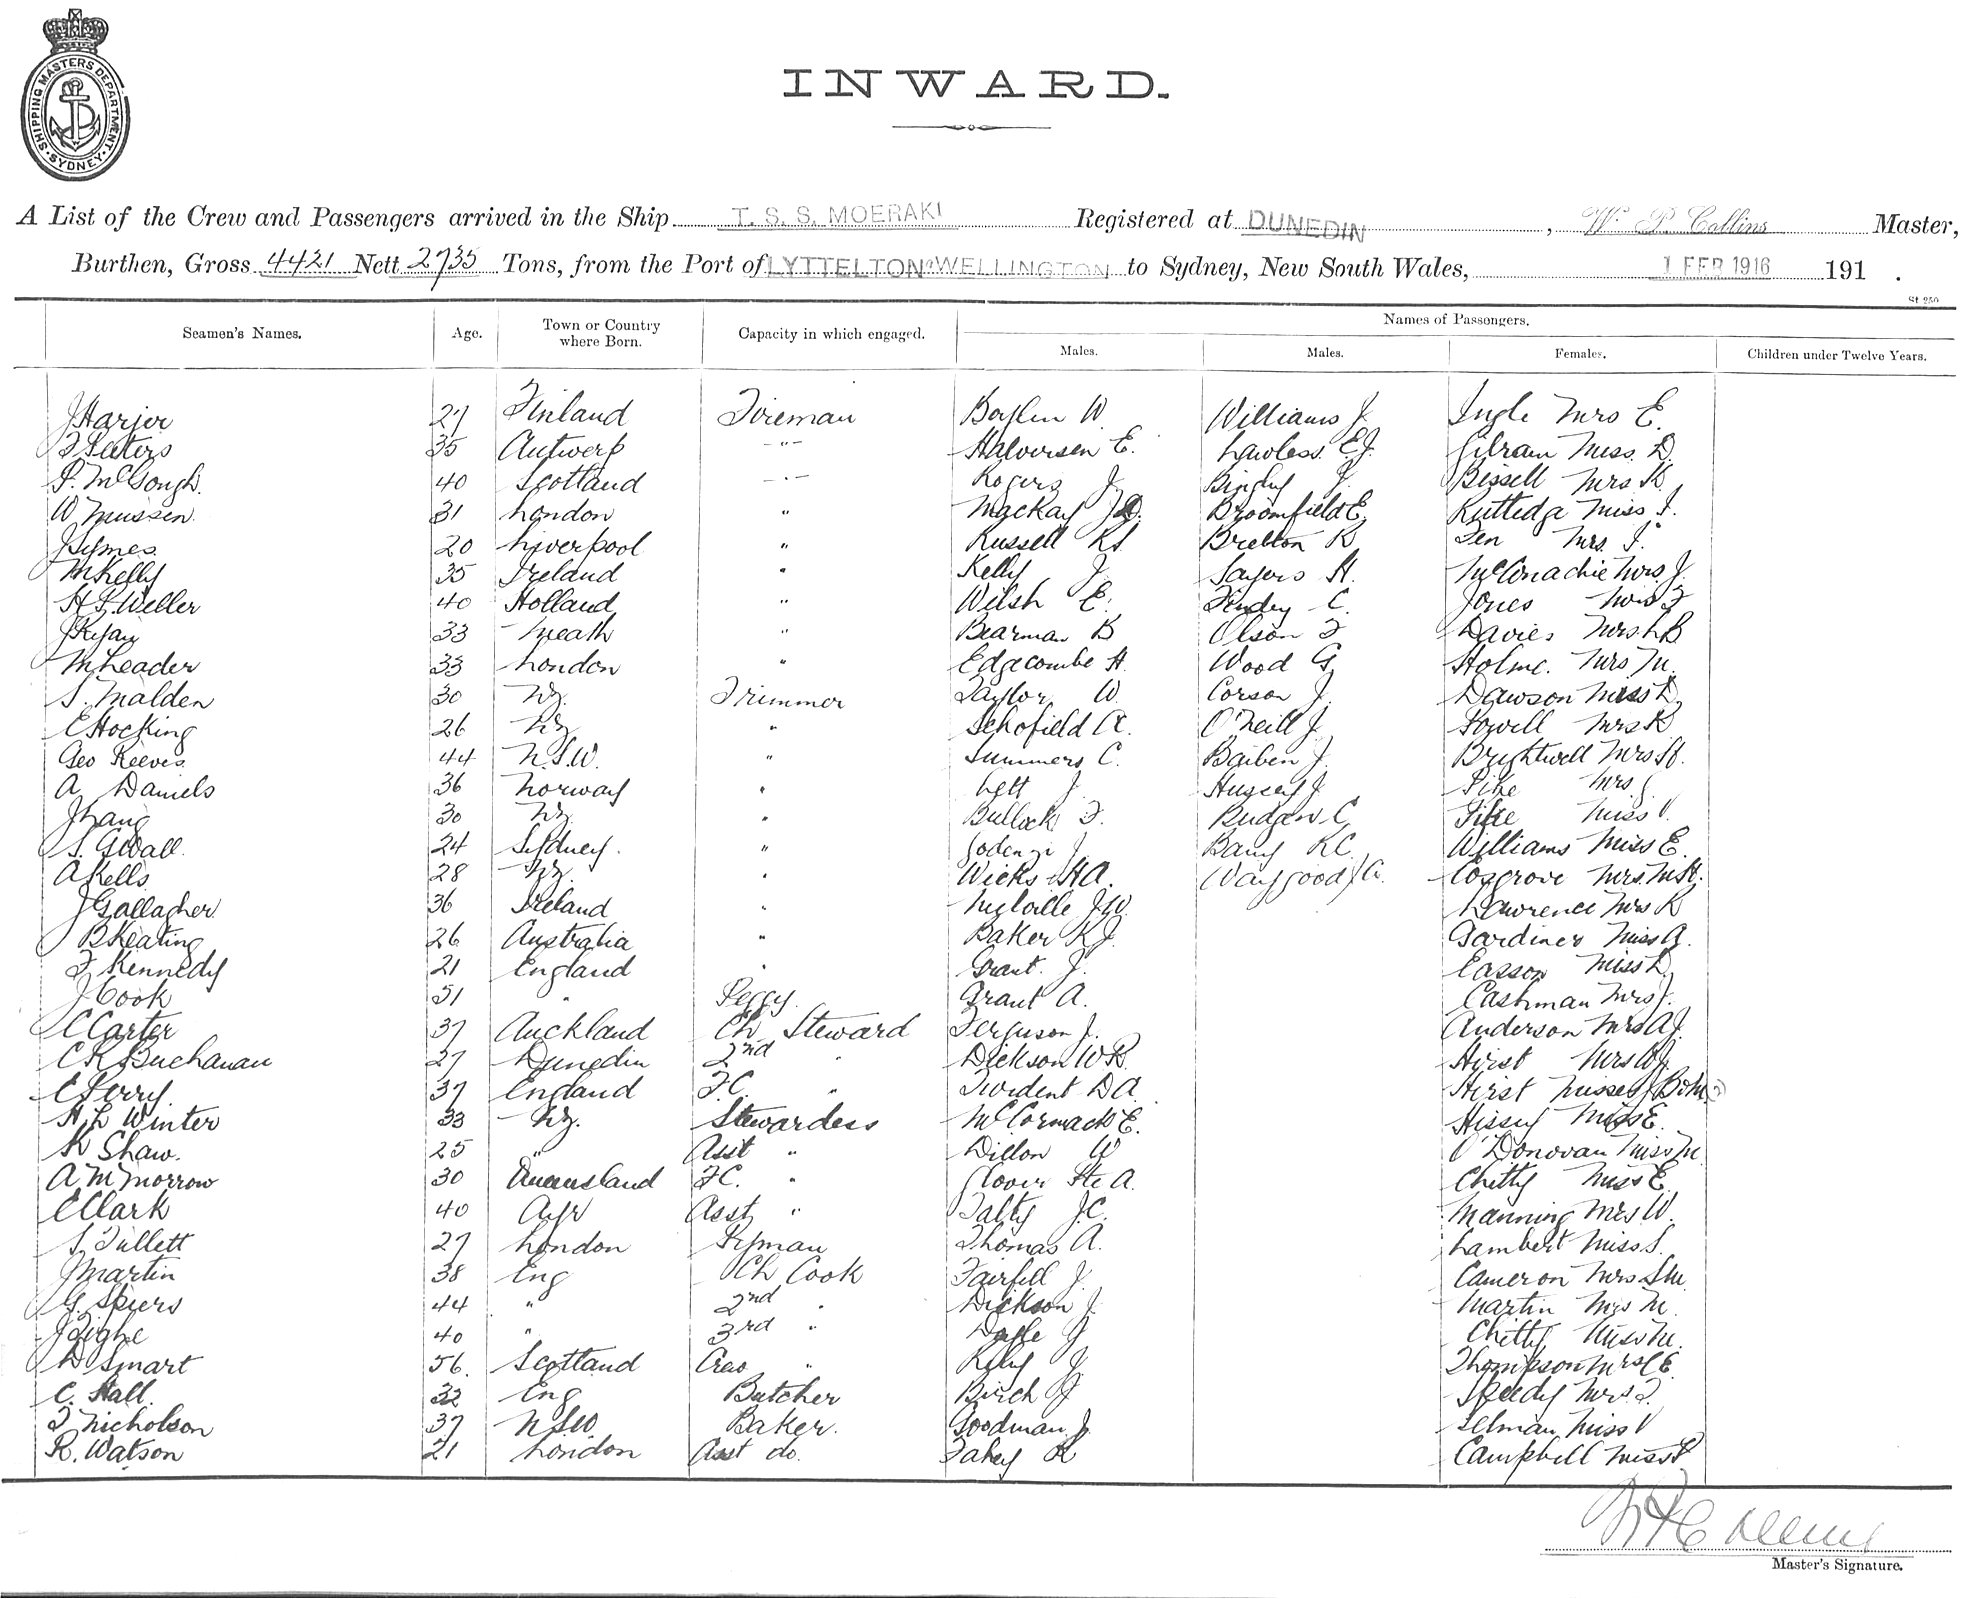 SHIPPING MASTERS DEPARTMENT SYDNEY
INWARD.
A List of the Crew and Passengers arrived in the Ship T. S. S. MOERAKI Registered at DUNEDIN, W. P. Collins Master,
Burthen, Gross 4421 Nett 2735 Tons, from the Port of LYTTELTON & WELLINGTON to Sydney, New South Wales, 1 FEB 1916 191 .
St 250
Seamen's Names. Age. Town or Country where Born. Capacity in which engaged. Names of Passengers.
Males. Males. Females. Children under Twelve Years.
J Harjor 27 Finland Fireman W. Williams J. Ingle Mrs E.
35 Antwerp " Halvorsen E. Lawless E.J. Miss D.
P. McGough. 40 Scotland " Rogers J. J. Bissell Mrs K
W 31 London " Mackay J.D. Broomfield E. Rutledga Miss I.
J Symes 20 Liverpool " Russell Bretton R Mrs I.
M Kelly 35 Ireland " Kelly J. Sayers H. McConachie Mrs J.
H F Weller 40 Holland " Welsh E. C. Jones Mrs F
J Ryan 33 Meath " Bearman B Olson F Davies Mrs L B
M Leader 33 London " Edgacombe H. Wood G. Holme. Mrs M.
S. Malden 30 N.Z. Trimmer Taylor W. Corson J. Dawson Miss D.
E Hocking 26 N.Z. " Schofield A. O'Neill J. Mrs K
Geo Reeves 44 N.S.W. " Summers C. Baiben J. Brightwell Mrs H.
A Daniels 36 Norway " Lett J. Hussey J. Pike Mrs J
J Lang 30 N.Z. " Bullock F. Rudgen C. Miss V.
24 Sydney. " J Barry R C Williams Miss E.
A Kells 28 N.Z. " Wicks H A. Waygood J G. Cosgrove Mrs M H.
J Gallagher 36 Ireland " Melville J W. Lawrence Mrs R
B Keating 26 Australia " Baker R J. Gardiner Miss A.
F Kennedy 21 England " Grant. J. Easson Miss D.
J Cook 51 " Peggy. Grant A. Cashman Mrs J.
C Carter 37 Auckland Ch Steward Ferguson J. Anderson Mrs A J.
C R Buchanan 27 Dunedin 2nd " Dickson W R. Hirst Mrs W J.
37 England F.C. " Trident D A. Hirst Misses
H L Winter 33 N.Z. Stewardess McCormack E. Hissey Miss E.
K Shaw. 25 " Asst " Dillon W O'Donovan Miss M.
A M Morrow 30 Queensland F.C. " Glover A. Chitty Miss E.
E Clark 40 Ayr Asst " Talty J.C. Manning Mrs W.
S Tullett 27 London Thomas A. Lambert Miss S.
J Martin 38 Eng Ch Cook J. Cameron Mrs S M.
G. Spiers 44 " 2nd " Dickson J. Martin Mrs M.
J Tighe 40 " 3rd " Doyle J Chitty Miss M.
D Smart 56. Scotland " Riley J Thompson Mrs C E.
C. Hall. 32 Eng Butcher Birch J Speedy Mrs J.
T Nicholson 37 N.S.W. Baker. Goodman J. Selman Miss V
R. Watson 21 London Asst do. Fahey R Campbell Miss P
Master's Signature.